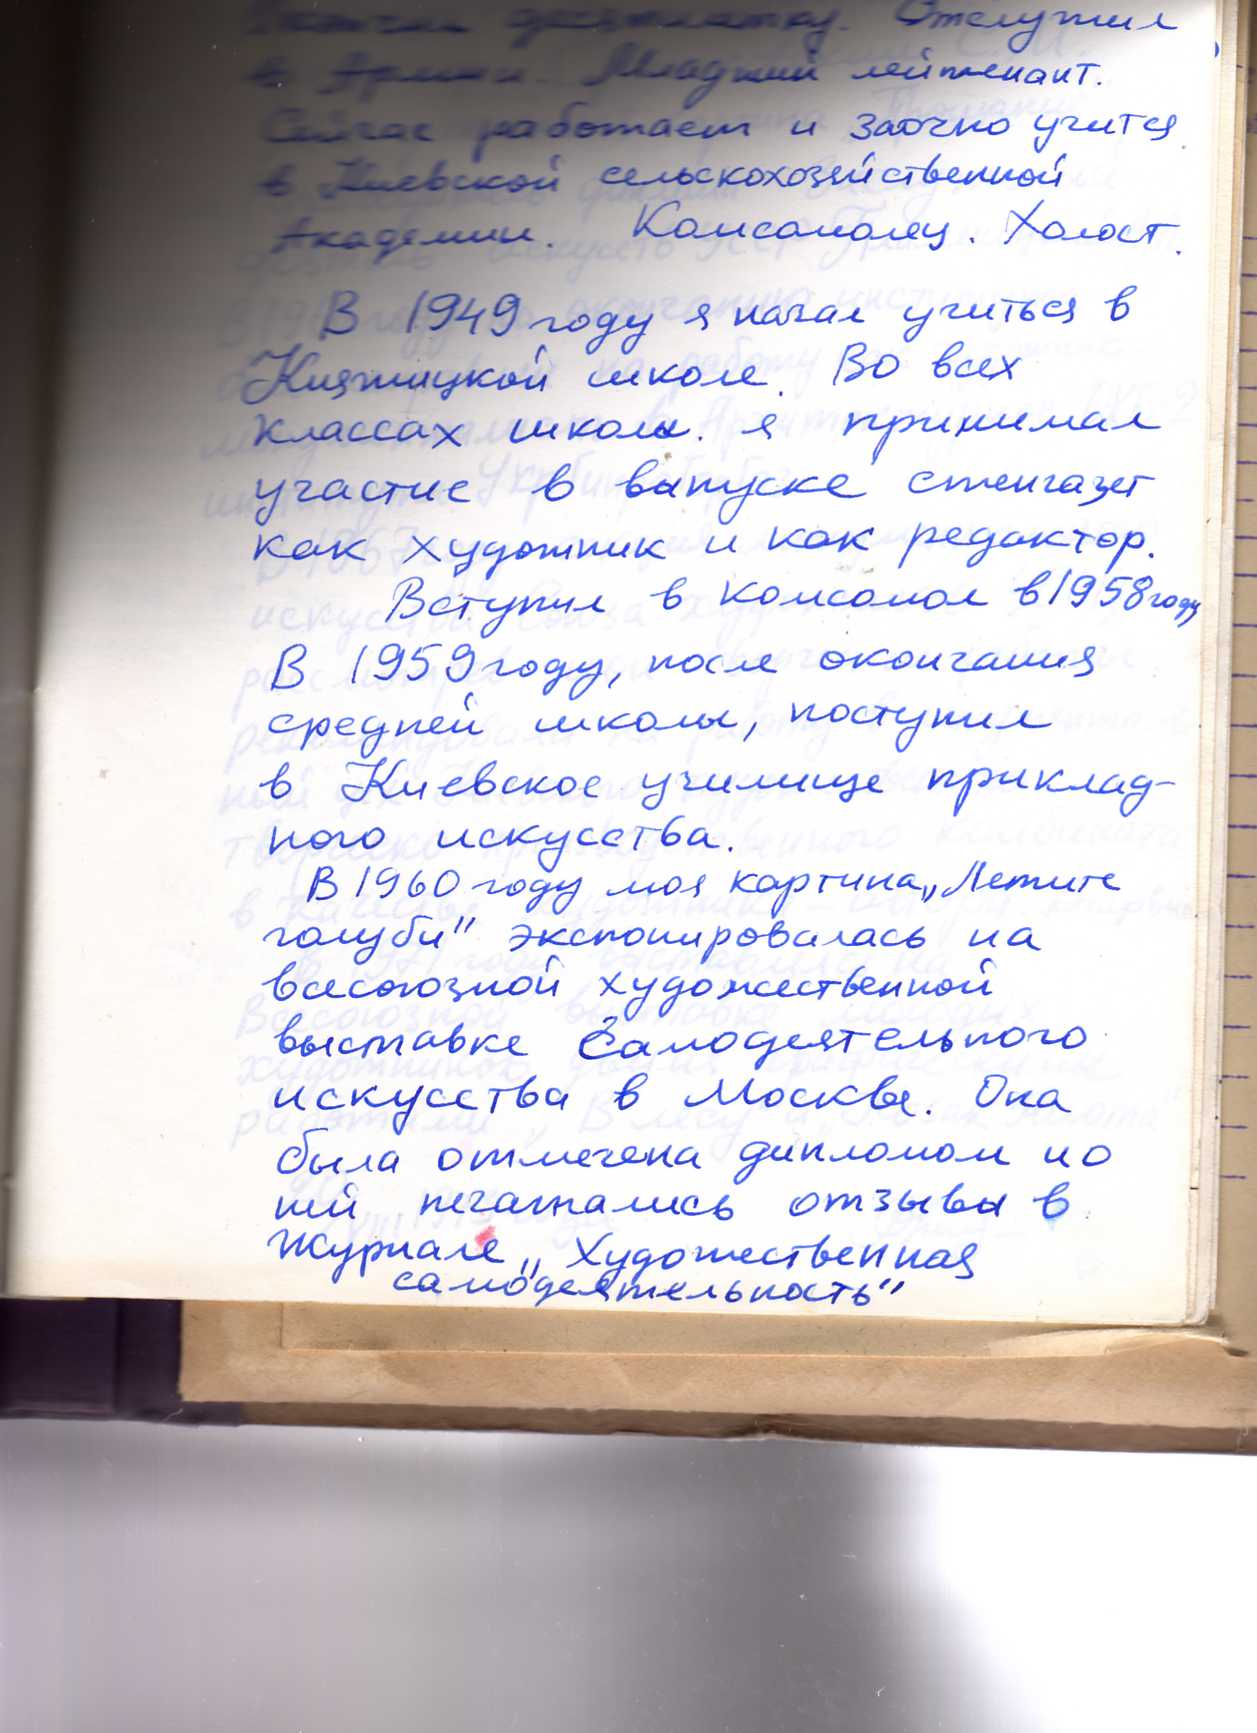 Окончил десятилетку. Отслужил
в Армии. Младший лейтенант.
Сейчас работает и заочно учится
в Киевской сельскохозяйственной
Академии. Комсомолец. Холост.
В 1949 году я начал учиться в
Княжицкой школе. Во всех
классах школы я принимал
участие в выпуске стенгазет
как художник и как редактор.
Вступил в комсомол в 1958 году
В 1959 году, после окончания
средней школы, поступил
в Киевское училище приклад-
ного искусства.
В 1960 году моя картина „Летите
голуби" экспонировалась на
всесоюзной художественной
выставке Самодеятельного
искусства в Москве. Она
была отмечена дипломом и о
ней печатались отзывы в
журнале „Художественная
самодеятельность"